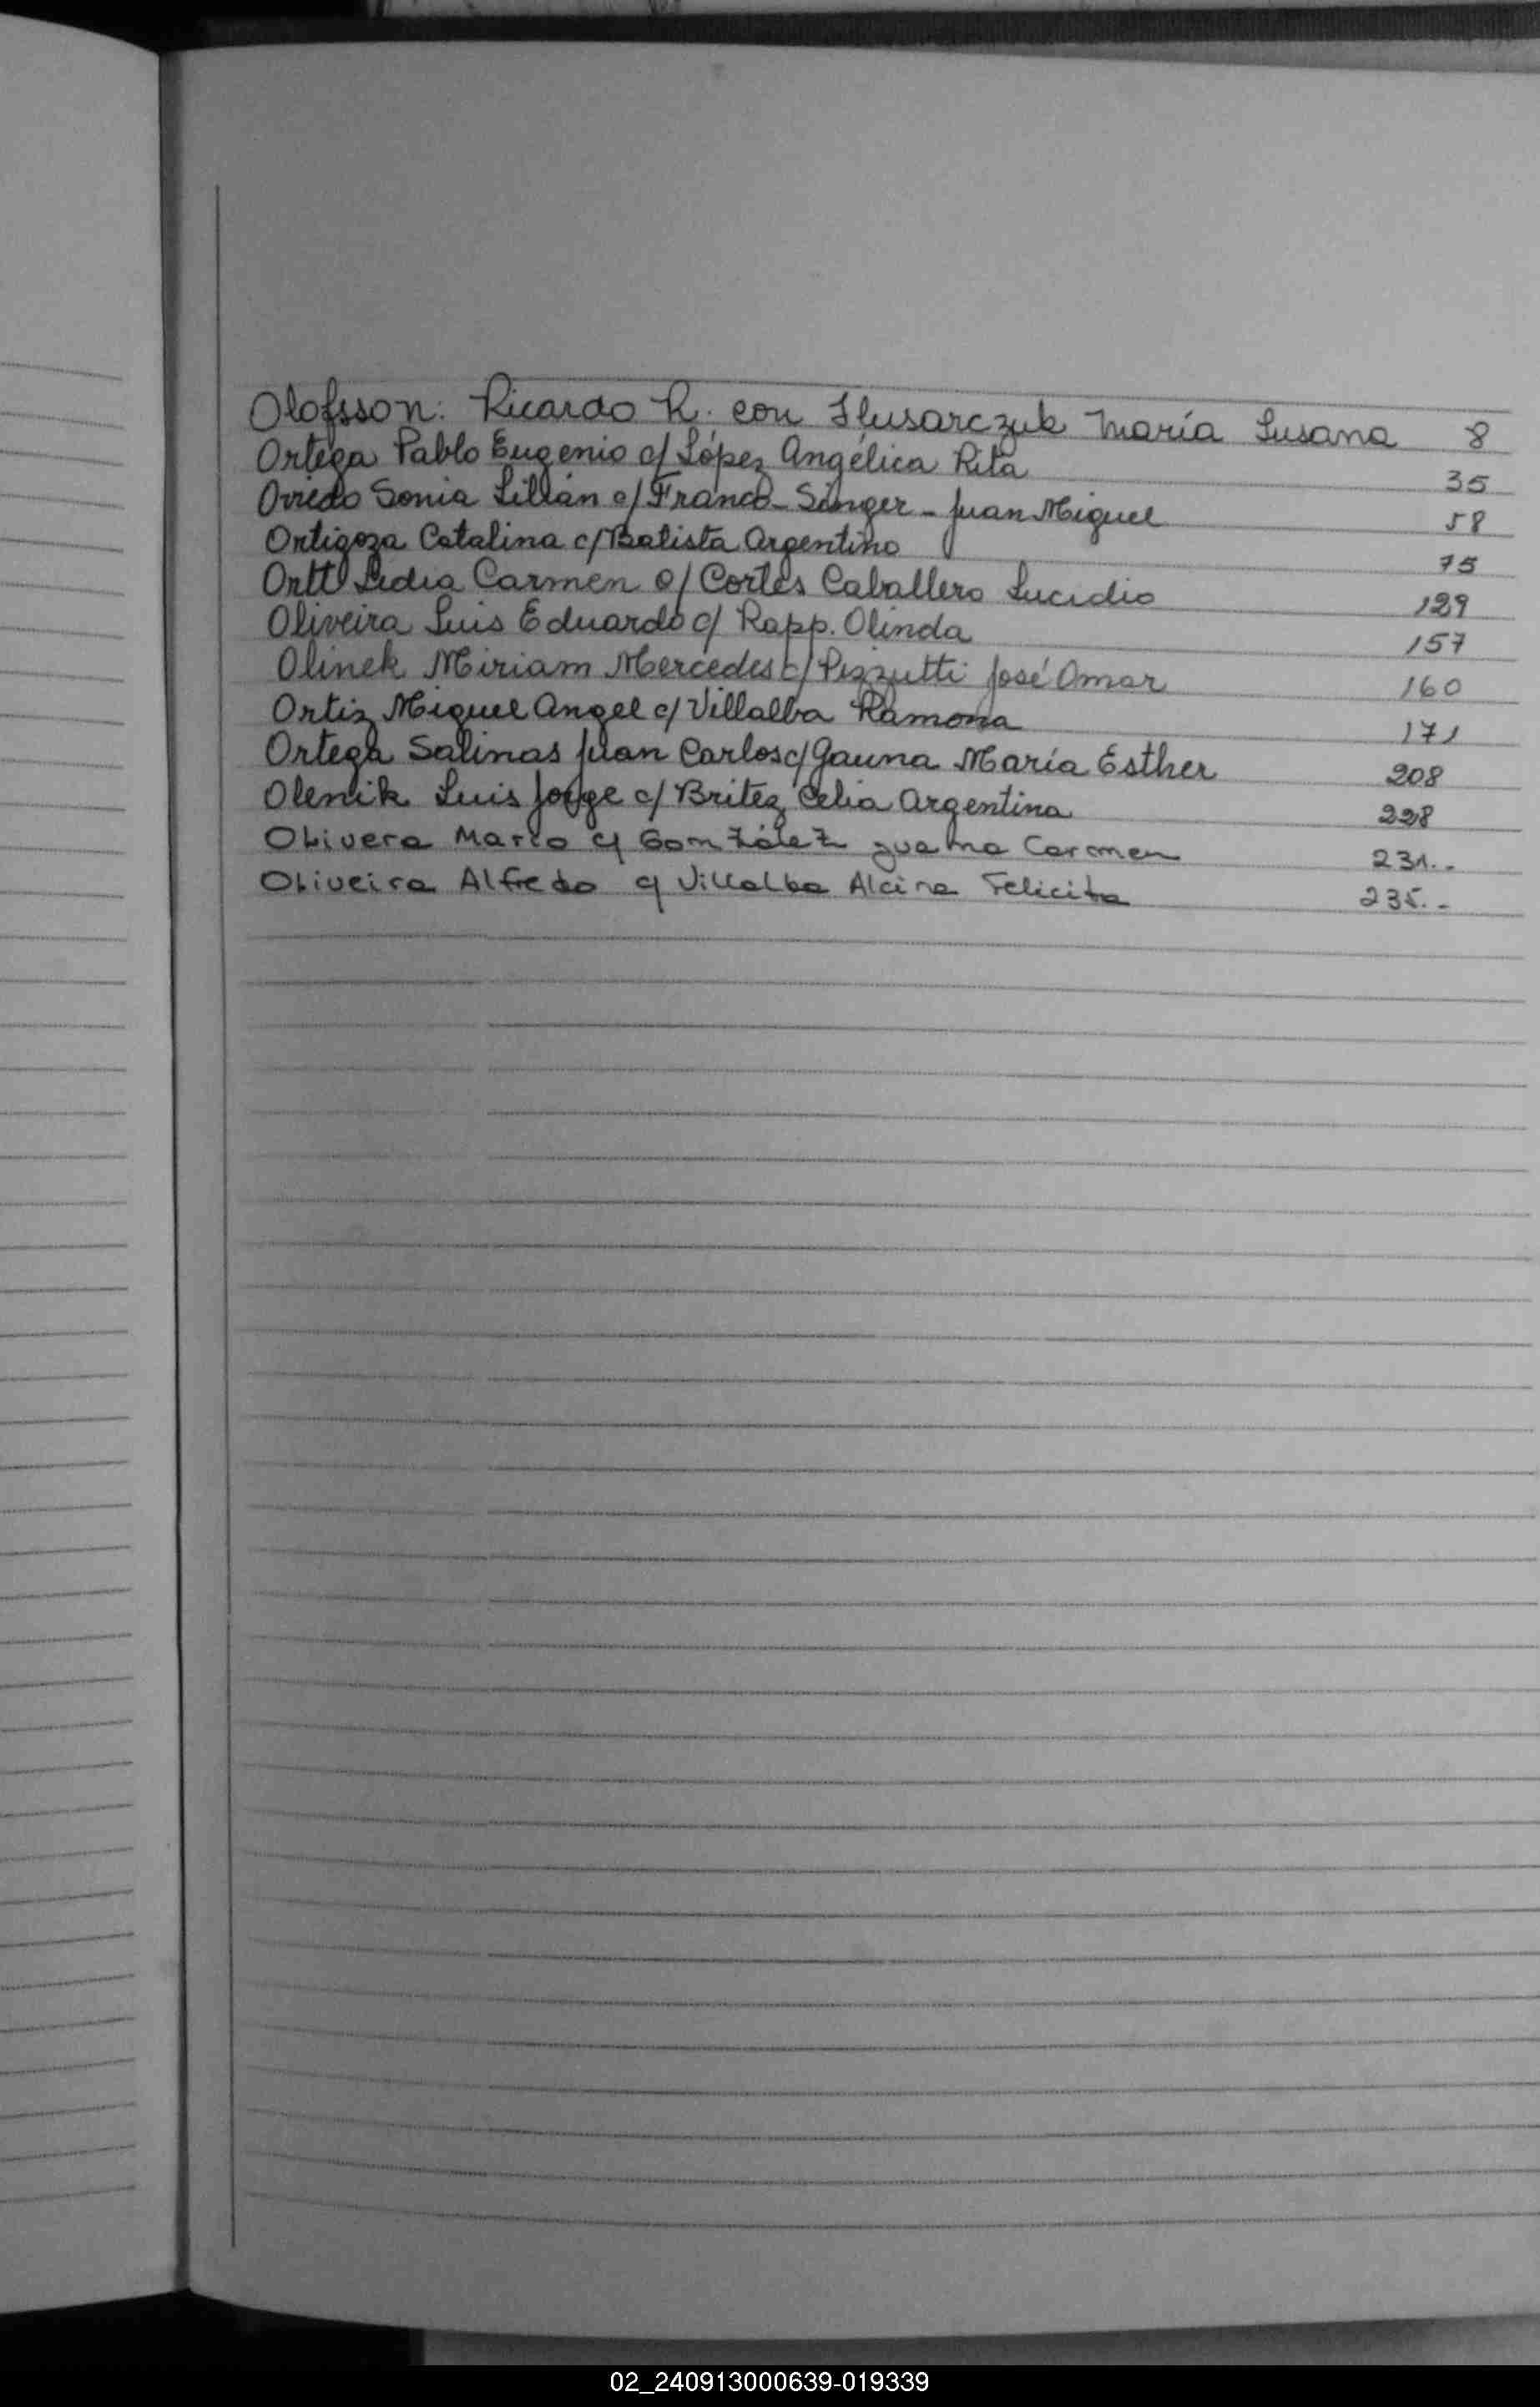 Olofsson: Ricardo R. con Slusarczuk María Susana 8
Ortega Pablo Eugenio c/ López Angélica Rita 35
Oviedo Sonia Lilián c/ Franco - Singer - Juan Miguel 58
Ortigoza Catalina c/ Batista Argentino 75
Ortt Lidia Carmen c/ Cortés Caballero Lucidio 129
Oliveira Luis Eduardo c/ Rapp. Olinda 157
Olinek Miriam Mercedes c/ Pizzutti José Omar 160
Ortiz Miguel Angel c/ Villalba Ramona 171
Ortega Salinas Juan Carlos c/ Gauna María Esther 208
Olenik Luis Jorge c/ Britez Celia Argentina 228
Olivera Mario c/ González Carmen 231..
Oliveira Alfredo c/ Villalba Alcira Felicita 235.-
02_240913000639-019339